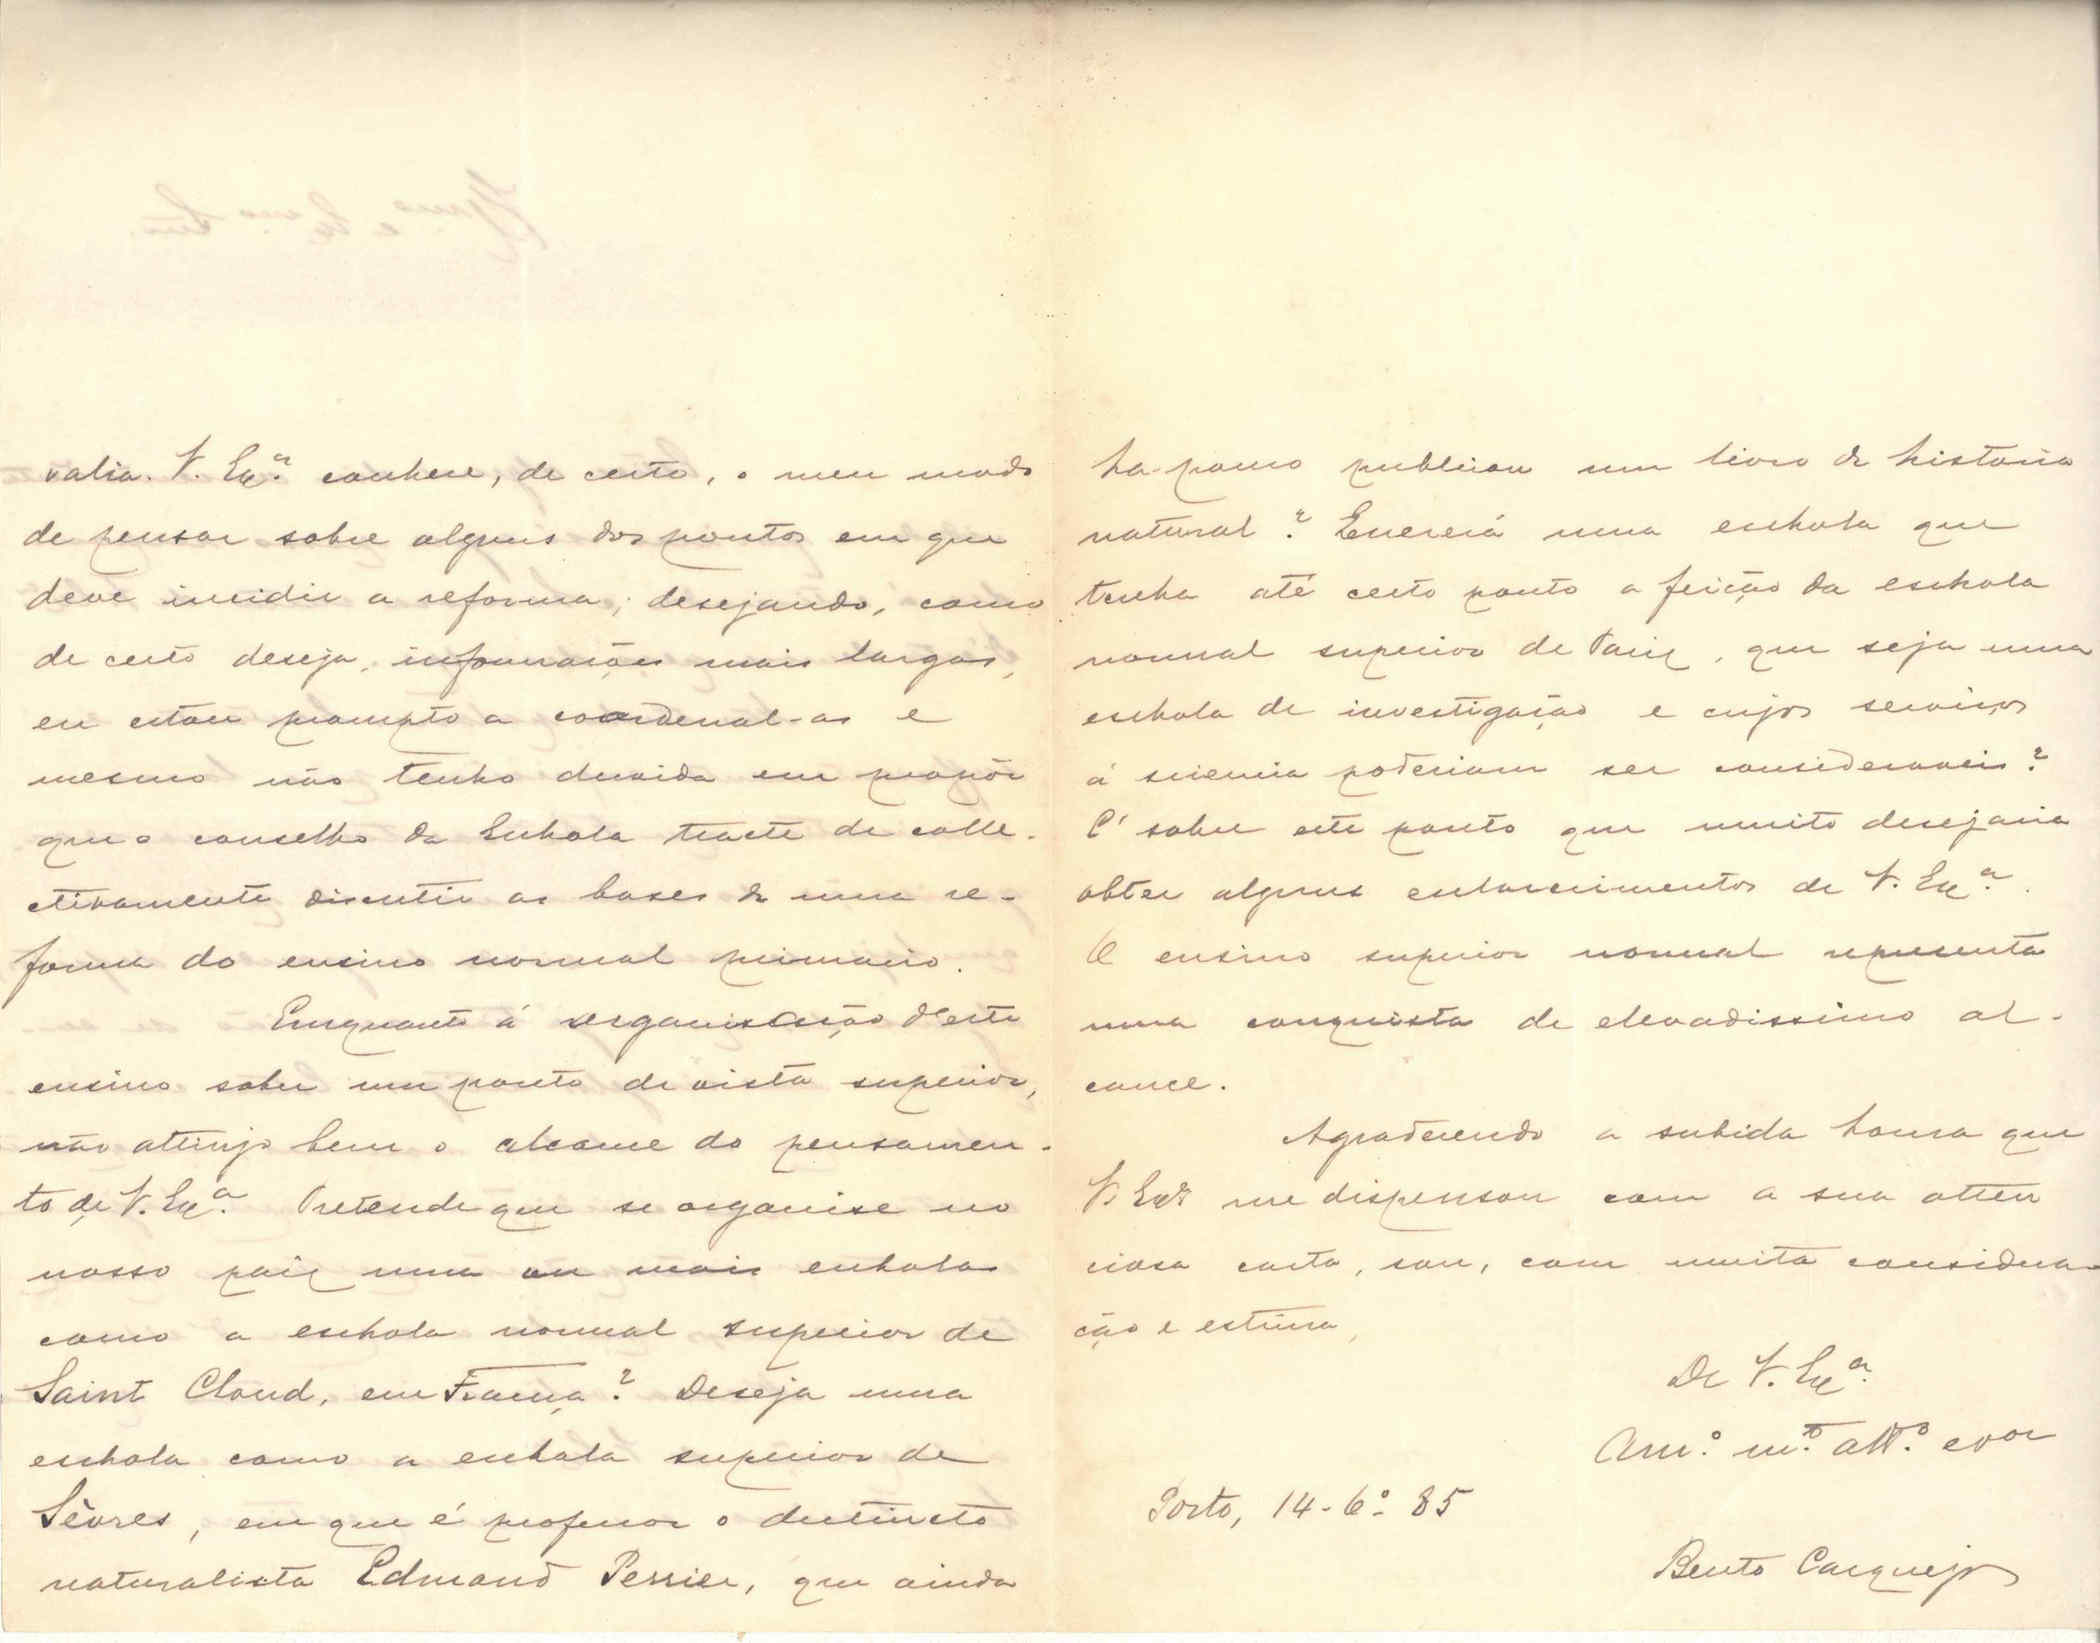 valia. V. Ex.ª conhece, de certo, o meu modo
de pensar sobre alguns dos pontos em que
deve incidir a reforma; desejando, como
de certo deseja, informações mais largas,
eu estou prompto a coordenal-as e
mesmo não tenho duvida em propôr
que o conselho da Eschola tracte de colle-
ctivamente discutir as bases de uma re-
forma do ensino normal primario.
Emquanto á organisação d'este
ensino sobre um ponto de vista superior,
não attinjo bem o alcance do pensamen-
to de V. Ex.ª Pretende que se organise no
nosso paiz uma ou mais escholas
como a eschola normal superior de
Saint Cloud, em França? Deseja uma
eschola como a eschola superior de
Sèvres, em que é professor o distincto
naturalista Edmond Perrier, que ainda
ha pouco publicou um livro de historia
natural? Quererá uma eschola que
tenha até certo ponto a feição da eschola
normal superior de Pariz, que seja uma
eschola de investigação e cujos serviços
á sciencia poderiam ser consideraveis?
É sobre este ponto que muito desejaria
obter alguns esclarecimentos de V. Ex.ª.
O ensino superior normal representa
uma conquista de elevadissimo al-
cance.
Agradecendo a subida honra que
V. Ex.ª me dispensou com a sua atten
ciosa carta, sou, com muita considera-
ção e estima,
De V. Ex.ª
Am.º m.to att.º e vor
Porto, 14-6.º 85
Bento Carqueja